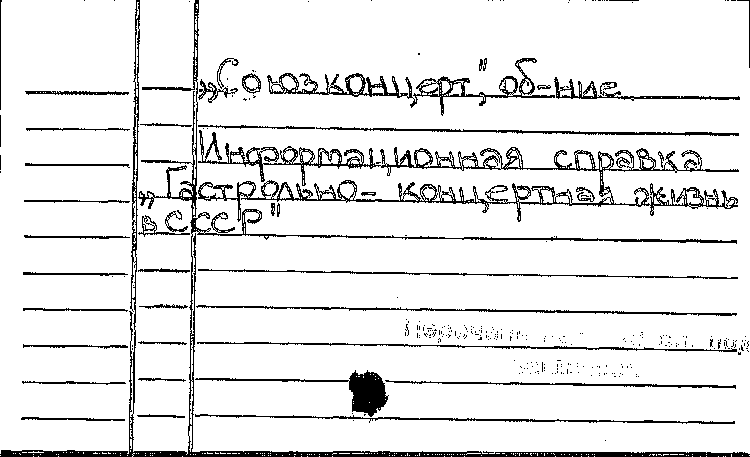 „Союзконцерт", об-ние
Информационная справка
„Гастрольно-концертная жизнь
в СССР"